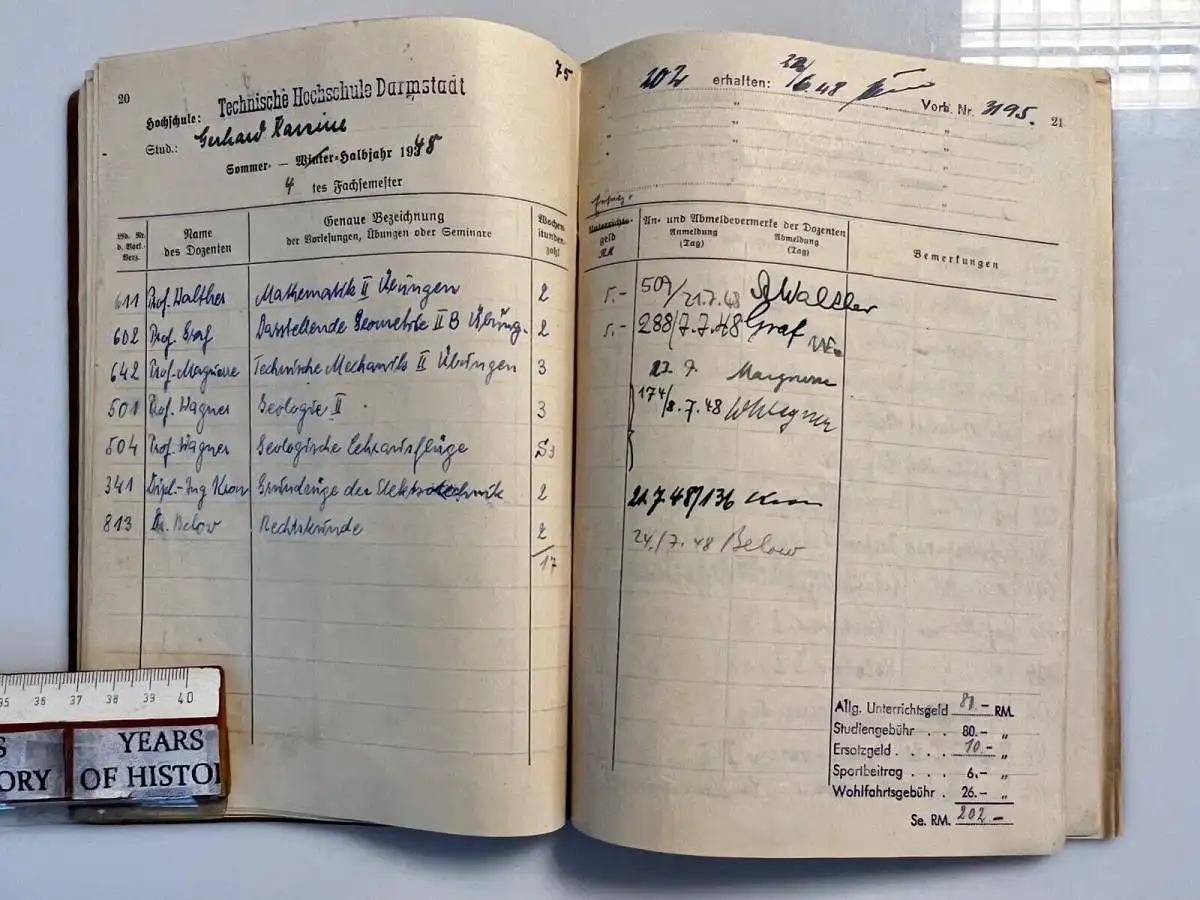 20
75
Technische Hochschule Darmstadt
Hochschule:
Stud.: Gerhard
Sommer- — Winter-Halbjahr 1948
4 tes Fachsemester
Lfd. Nr. d. Vorl. Verz.
Name des Dozenten
Genaue Bezeichnung der Vorlesungen, Übungen oder Seminare
Wochenstundenzahl
611 Prof. Walther Mathematik II Übungen 2
602 Prof. Graf Darstellende Geometrie II B Übung. 2
642 Prof. Marguerre Technische Mechanik II Übungen 3
501 Prof. Wagner Geologie II 3
504 Prof. Wagner Geologische Lehrausflüge 3
341 Dipl.-Ing Kron Grundzüge der Elektrotechnik 2
813 Dr. Below Rechtskunde 2
17
202 erhalten: 6.48 Vorb. Nr. 3195. 21
" "
" "
" "
" "
Unterrichtsgeld RM
An- und Abmeldevermerke der Dozenten
Anmeldung (Tag)
Abmeldung (Tag)
Bemerkungen
5.- 509/21.7.48 Walther
5.- 288/7.7.48 Graf
22 7. Marguerre
174/8.7.48 W Wagner
21.7.48/136 Kron
24./7.48 Below
Allg. Unterrichtsgeld 80.- RM.
Studiengebühr . . 80.- "
Ersatzgeld . . . . 10.- "
Sportbeitrag . . . 6.- "
Wohlfahrtsgebühr . 26.- "
Se. RM. 202.-
35 36 37 38 39 40
S YEARS
ORY OF HISTO